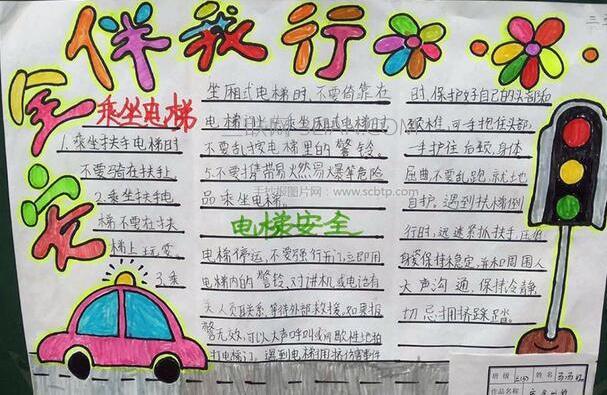 安全伴我行
三
乘坐电梯
1.乘坐扶手电梯时
不要骑在扶手上
2.乘坐扶手电
梯不要在扶
梯上玩耍。
3.乘
坐厢式电梯时,不要倚靠在
电梯门上。4.乘坐厢式电梯时
不要乱按电梯里的警铃。
5.不要携带易火然易火暴等危险
品乘坐电梯。
电梯安全
电梯停运,不要强行开门,立即用
电梯内的警铃、对讲机或电话有
关人员联系,等待外部救援,如果报
警无效,可以大声呼叫或间歇性地拍
打电梯门。遇到电梯拥挤伤害事件
时,保护好自己的头部和
颈椎,可手抱住头部,
一手护住后颈,身体
屈曲不要乱跑,就土也
自护。遇到扶梯倒
行时,迅速紧抓扶手,压低
身躯保持稳定,并和周围人
大声沟通,保持冷静,
切忌拥挤踩踏。
手抄报图片网:www.scbtp.com
班级
姓名
作品名称